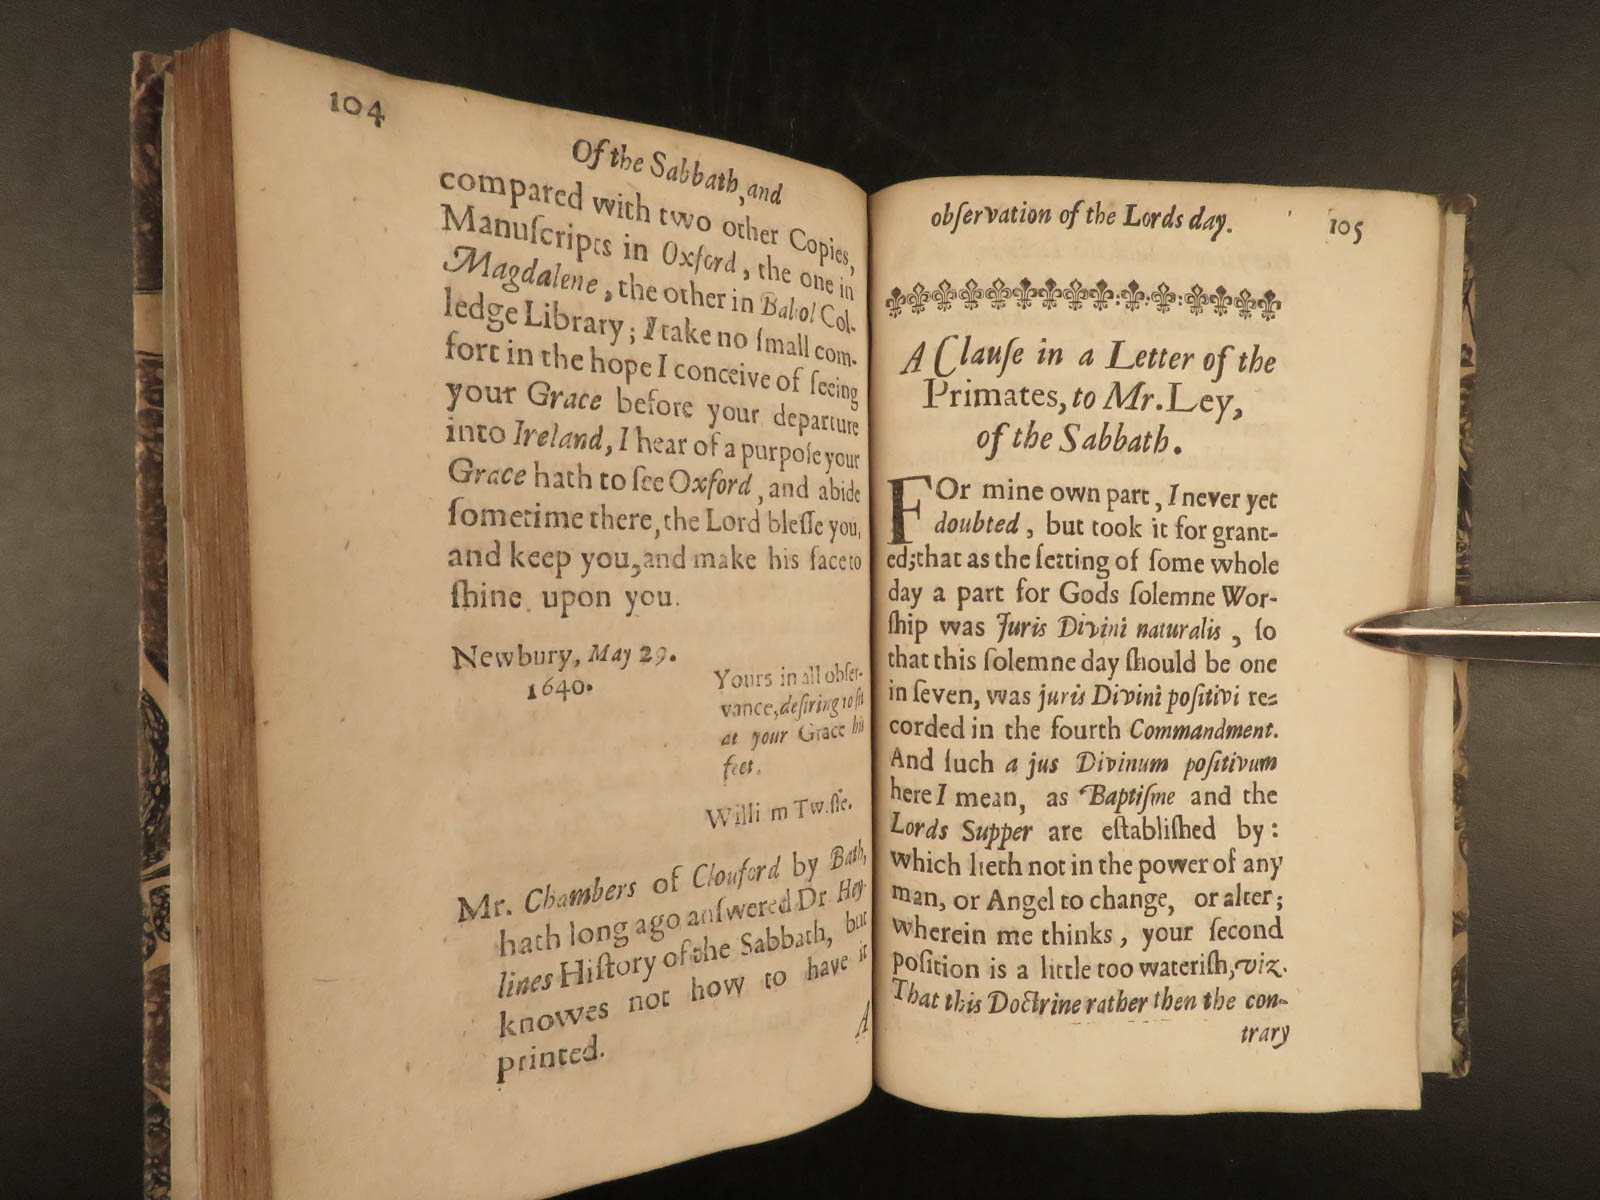 104
Of the Sabbath, and
compared with two other Copies,
Manuſcripts in Oxford, the one in
Magdalene, the other in Baliol Col-
ledge Library; I take no ſmall com-
fort in the hope I conceive of ſeeing
your Grace before your departure
into Ireland, I hear of a purpoſe your
Grace hath to ſee Oxford, and abide
ſometime there, the Lord bleſſe you,
and keep you, and make his face to
ſhine upon you.
Newbury, May 29.
1640.
Yours in all obſer-
vance, deſiring to ſit
at your Grace his
feet.
Willi m Tw.ſſe.
Mr. Chambers of Clouford by Bath,
hath long ago anſwered Dr Hey-
lines Hiſtory of the Sabbath, but
knowes not how to have it
printed.
A
obſervation of the Lords day.
105
A Clauſe in a Letter of the
Primates, to Mr. Ley,
of the Sabbath.
FOr mine own part, I never yet
doubted, but took it for grant-
ed; that as the ſetting of ſome whole
day a part for Gods ſolemne Wor-
ſhip was Juris Divini naturalis, ſo
that this ſolemne day ſhould be one
in ſeven, was juris Divini poſitivi re-
corded in the fourth Commandment.
And ſuch a jus Divinum poſitivum
here I mean, as Baptiſme and the
Lords Supper are eſtabliſhed by:
which lieth not in the power of any
man, or Angel to change, or alter;
wherein me thinks, your ſecond
poſition is a little too wateriſh, viz.
That this Doctrine rather then the con-
trary